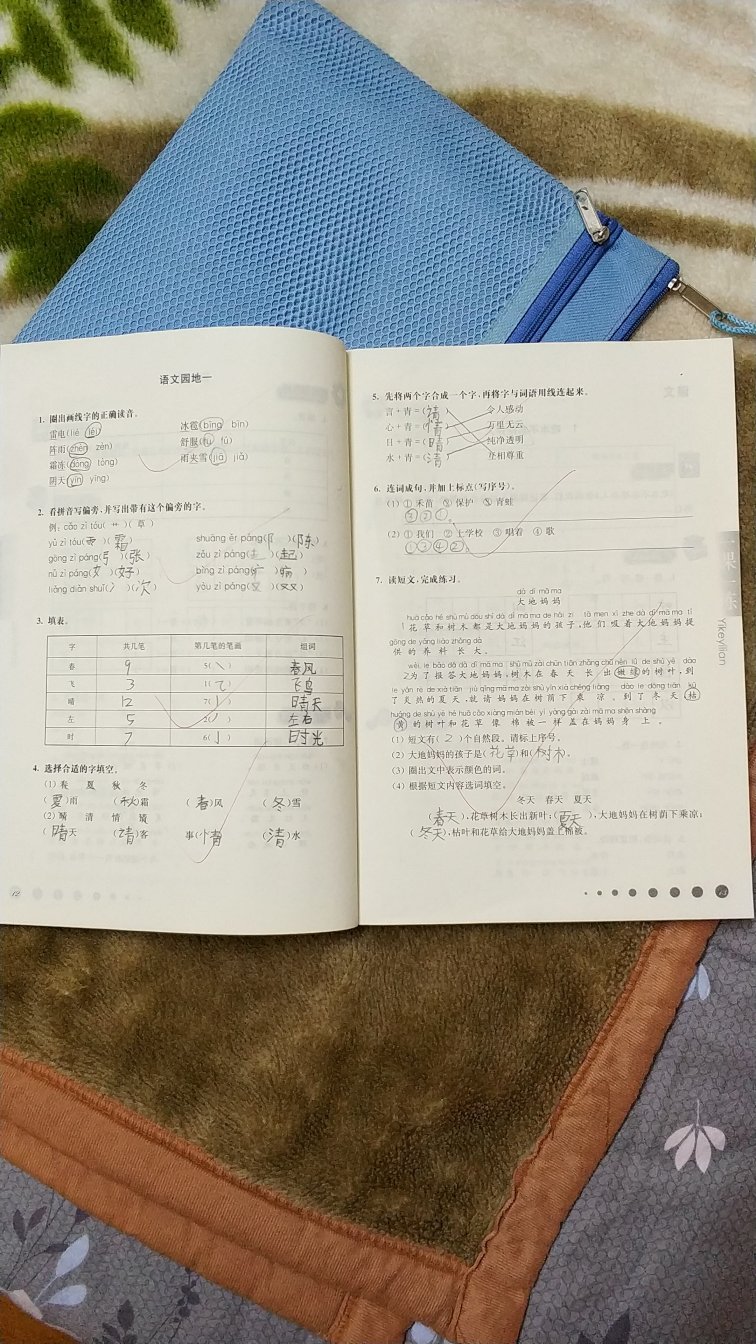 语文园地一
1. 圈出画线字的正确读音。
雷电(lié léi)
冰雹(bīng bīn)
阵雨(zhèn zèn)
舒服(fu fú)
霜冻(dòng tóng)
雨夹雪(jiā jiǎ)
阴天(yīn yīng)
2. 看拼音写偏旁,并写出带有这个偏旁的字。
例: cǎo zì tóu(艹)(草)
yǔ zì tóu( )(霜)
shuāng ěr páng(阝)(陈)
gōng zì páng(弓)(张)
zǒu zì páng(走)(起)
nǚ zì páng(女)(好)
bìng zì páng(疒)(病)
liǎng diǎn shuǐ(冫)(次)
yòu zì páng(又)(双)
3. 填表。
字 共几笔 第几笔的笔画 组词
春 9 5(㇏) 春风
飞 3 1( ) 飞鸟
晴 12 7(丨) 晴天
左 5 2( ) 左右
时 7 6(亅) 时光
4. 选择合适的字填空。
(1) 春 夏 秋 冬
(夏)雨 (秋)霜 (春)风 (冬)雪
(2) 晴 清 情 请
(晴)天 (请)客 事(情) (清)水
5. 先将两个字合成一个字,再将字与词语用线连起来。
言+青=(请) 令人感动
心+青=(情) 万里无云
日+青=(晴) 纯净透明
水+青=(清) 互相尊重
6. 连词成句,并加上标点(写序号)。
(1) ① 禾苗 ② 保护 ③ 青蛙
③②①。
(2) ① 我们 ② 上学校 ③ 唱着 ④ 歌
①③④②。
7. 读短文,完成练习。
dà dì mā ma
大地妈妈
huā cǎo hé shù mù dōu shì dà dì mā ma de hái zi tā men xī zhe dà dì mā ma tí
1花草和树木都是大地妈妈的孩子,他们吸着大地妈妈提
gōng de yǎng liào zhǎng dà
供的养料长大。
wèi le bào dá dà dì mā ma shù mù zài chūn tiān zhǎng chū nèn lǜ de shù yè dào
2为了报答大地妈妈,树木在春天长出嫩绿的树叶,到
le yán rè de xià tiān jiù qǐng mā ma zài shù yīn xia chéng liáng dào le dōng tiān kū
了炎热的夏天,就请妈妈在树荫下乘凉。到了冬天,枯
huáng de shù yè hé huā cǎo xiàng mián bèi yí yàng gài zài mā ma shēn shàng
黄的树叶和花草像棉被一样盖在妈妈身上。
(1) 短文有(2)个自然段。请标上序号。
(2) 大地妈妈的孩子是(花草)和(树木)。
(3) 圈出文中表示颜色的词。
(4) 根据短文内容选词填空。
冬天 春天 夏天
(春天),花草树木长出新叶;(夏天),大地妈妈在树荫下乘凉;
(冬天),枯叶和花草给大地妈妈盖上棉被。
一课一练
Yikeyilian
12
13